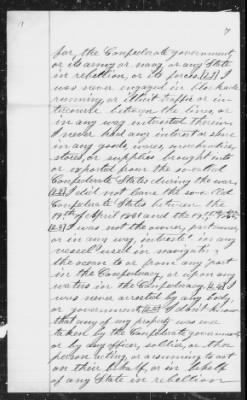 7
for the Confederate government
or its army or navy, or any State
in rebellion, or its forces. I
was never engaged in blockade
running, or illicit traffic or in-
tercourse between the lines, or
in any way interested therein.
I never had any interest or share
in any goods, wares, merchandise,
stores, or supplies brought into
or exported from the so-called
Confederate States during the war.
I did not leave the so-called
Confederate States between the
19th of April 1861 and the 19th
I was not the owner, part owner,
or in any way, interest in any
vessel used in navigating
the ocean to or from any port
in the Confederacy, or upon any
waters in the Confederacy. I
was never arrested by any body,
or government. I don't know
that any of my property was ever
taken by the Confederate government
or by any officer, soldier, or other
person acting, or assuming to act
on their behalf, or in behalf
of any State in rebellion